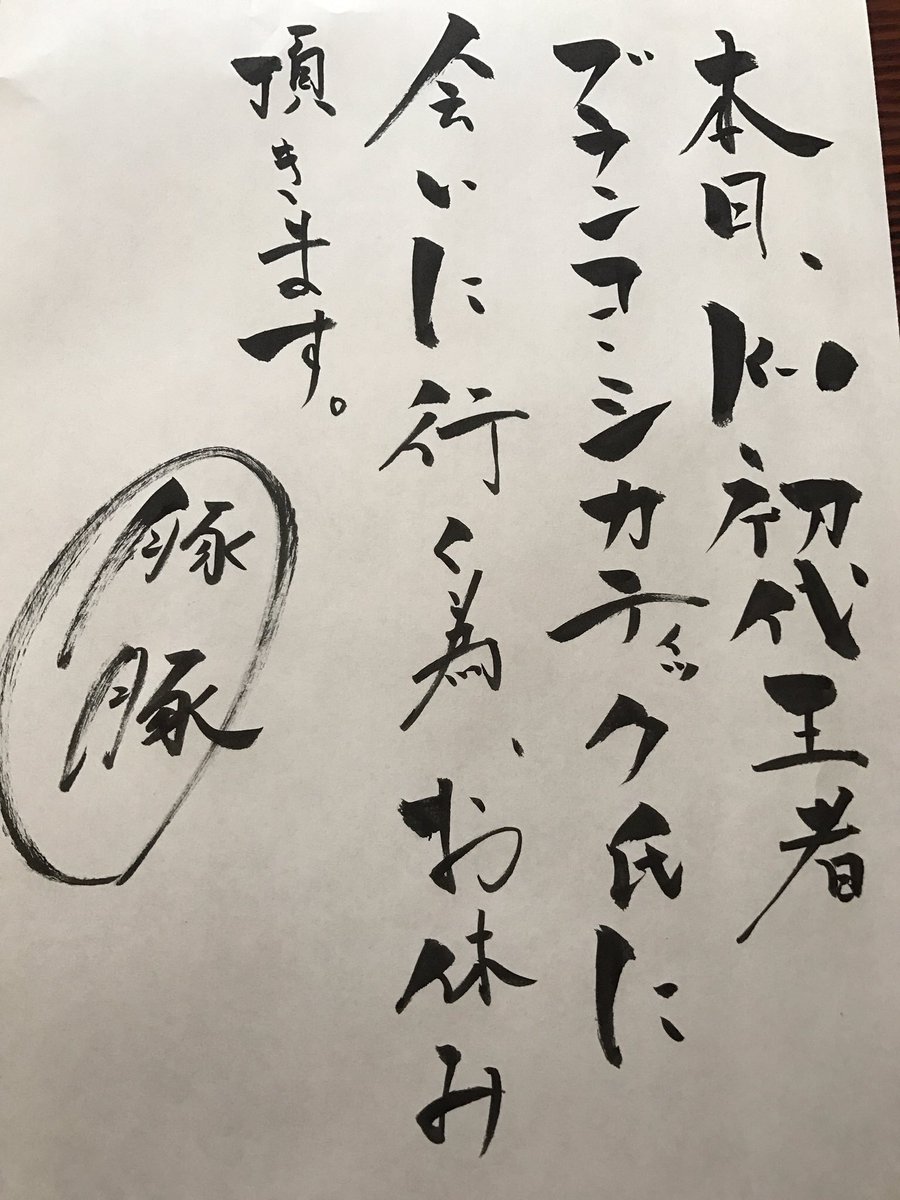 本日、K-1初代王者
ブランコ・シカティック氏に
会いに行く為、お休み
頂きます。
豚豚